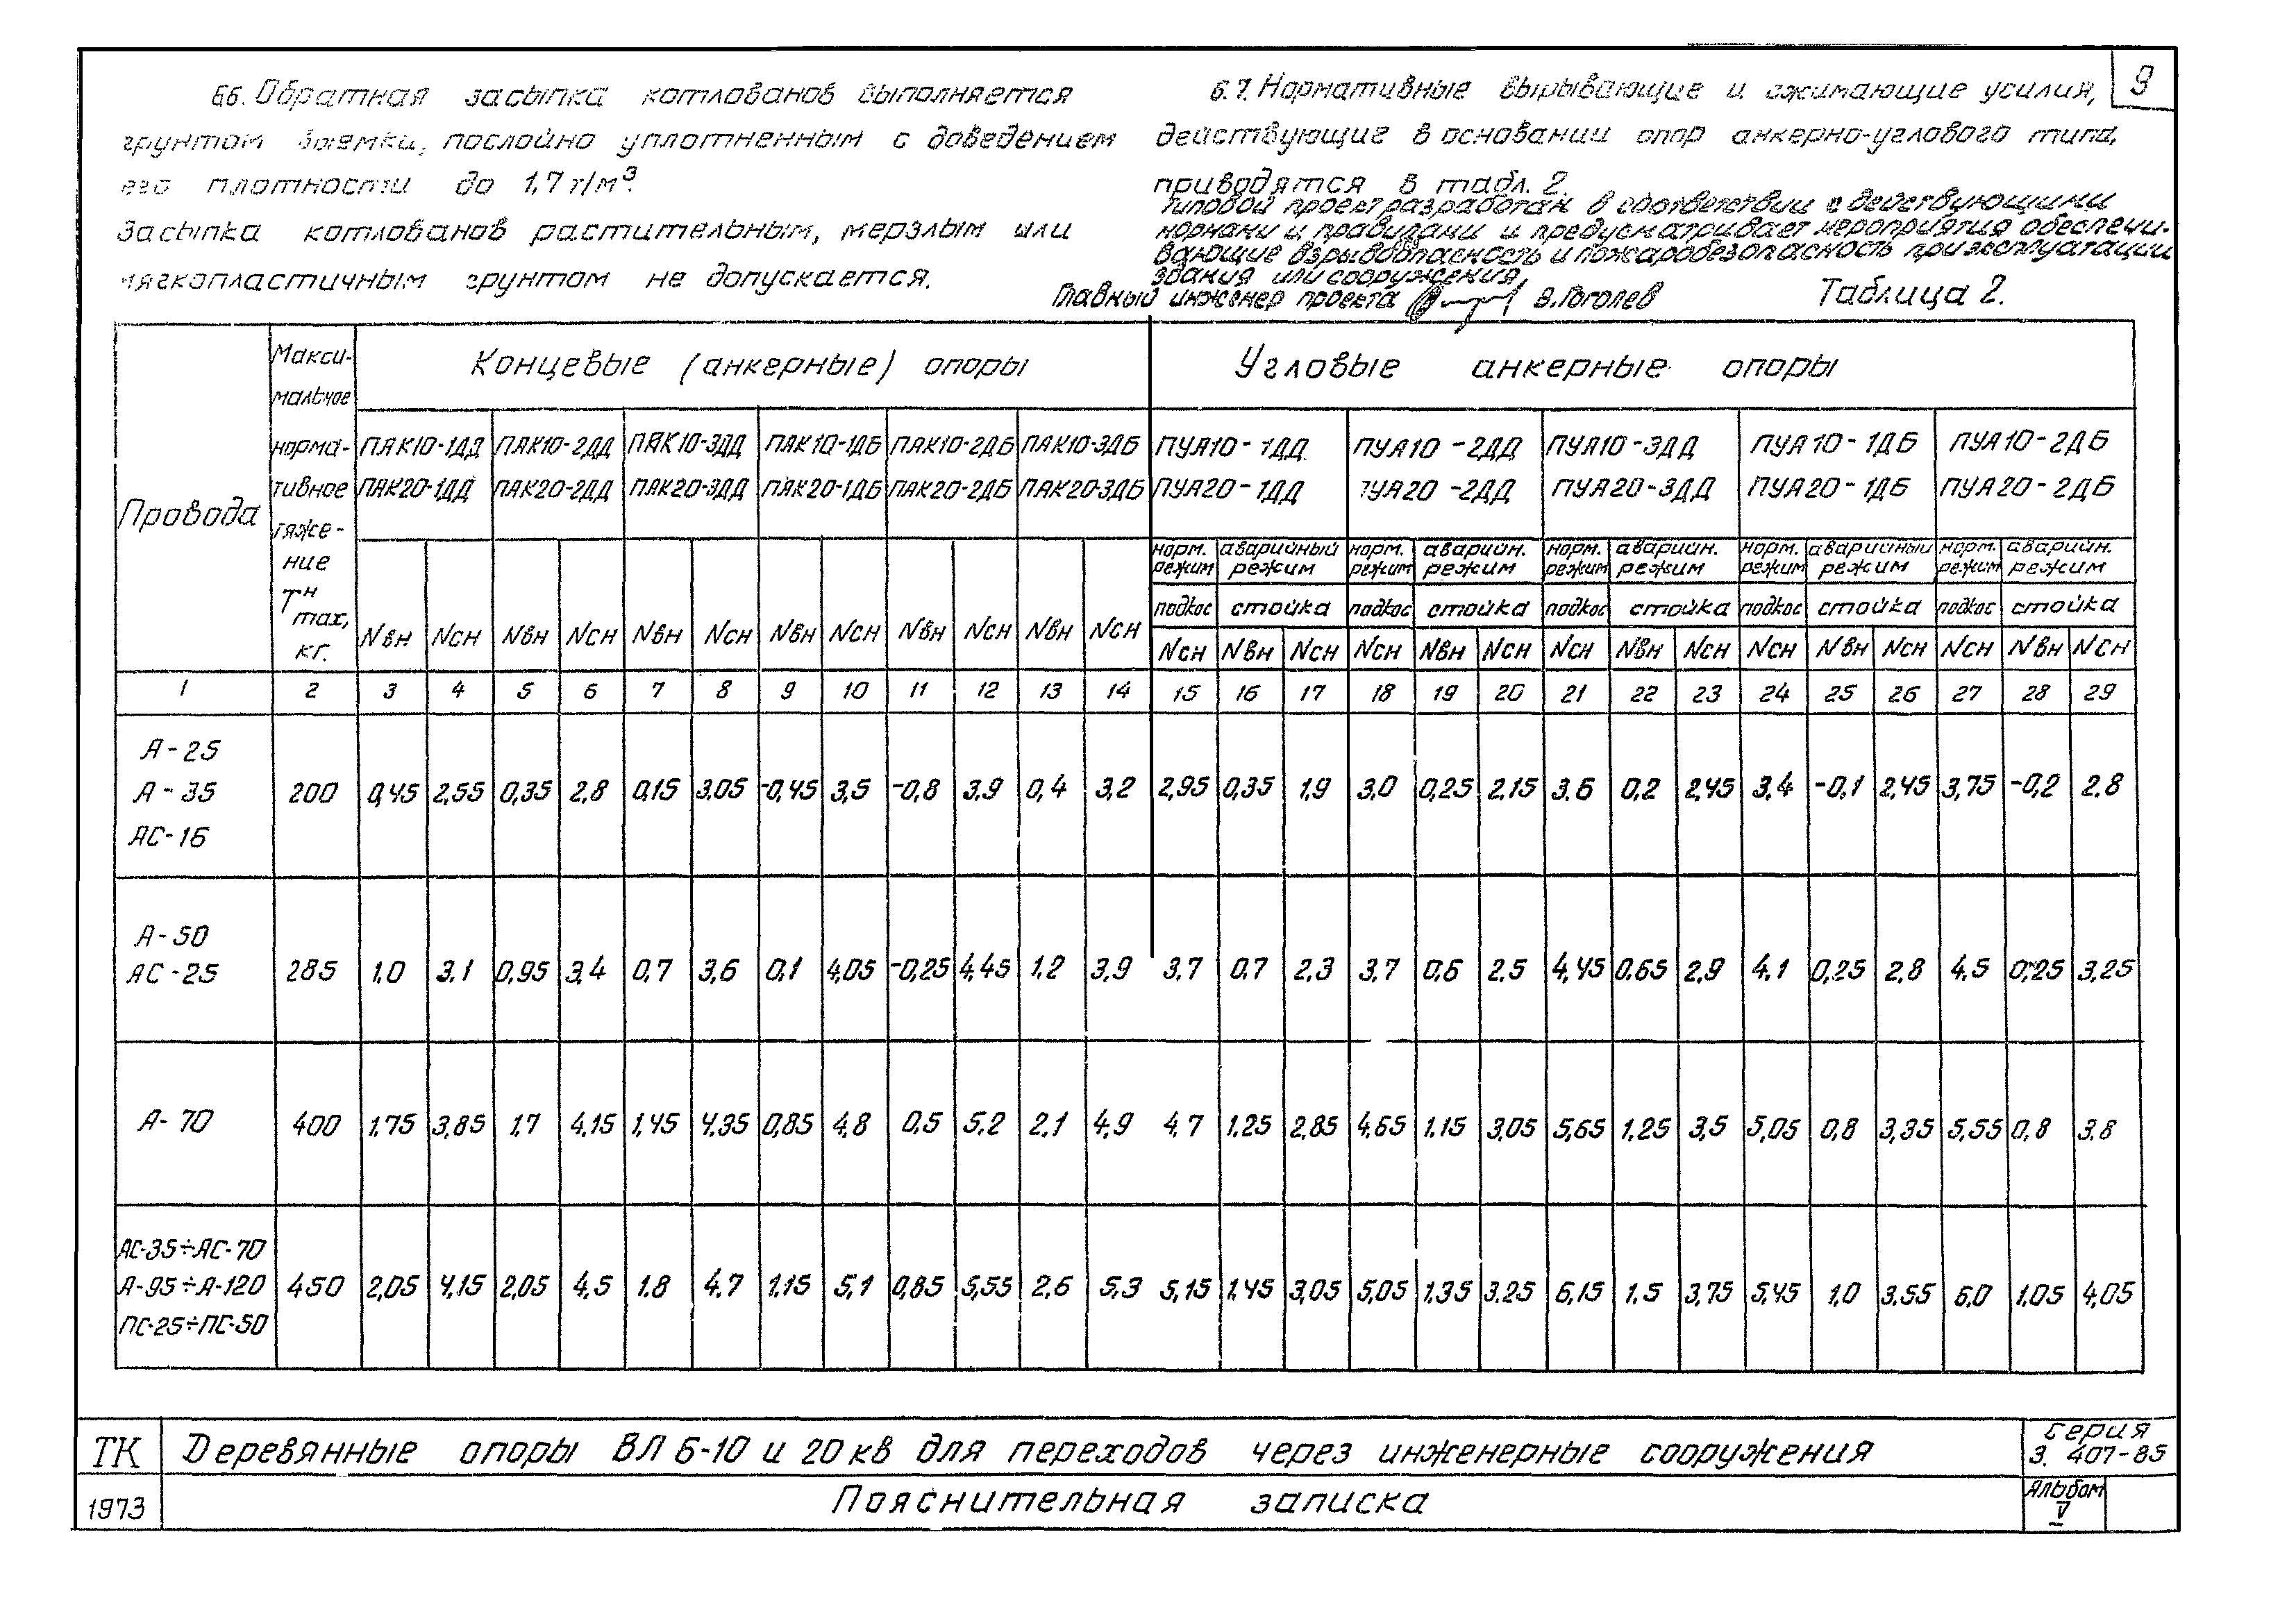 6.6. Обратная засыпка котлованов выполняется
грунтом выемки, послойно уплотненным с доведением
его плотности до 1,7 т/м³.
Засыпка котлованов растительным, мерзлым или
мягкопластичным грунтом не допускается.
9
6.7. Нормативные вырывающие и сжимающие усилия,
действующие в основании опор анкерно-углового типа,
приводятся в табл. 2.
Типовой проект разработан в соответствии с действующими
нормами и правилами и предусматривает мероприятия обеспечи-
вающие взрывоопасность и пожаробезопасность при эксплуатации
здания или сооружения
Главный инженер проекта В. Гоголев
Таблица 2.
Провода
Макси-
мальное
норма-
тивное
тяже-
ние
Tн max,
кг.
Концевые (анкерные) опоры Угловые анкерные опоры
ПАК10-1ДД ПАК10-2ДД ПАК10-3ДД ПАК10-1ДБ ПАК10-2ДБ ПАК10-3ДБ ПУА10-1ДД ПУА10-2ДД ПУА10-3ДД ПУА10-1ДБ ПУА10-2ДБ
ПАК20-1ДД ПАК20-2ДД ПАК20-3ДД ПАК20-1ДБ ПАК20-2ДБ ПАК20-3ДБ ПУА20-1ДД ПУА20-2ДД ПУА20-3ДД ПУА20-1ДБ ПУА20-2ДБ
норм. аварийный норм. аварийн. норм. аварийн. норм. аварийный норм. аварийн.
режим режим режим режим режим режим режим режим режим режим
подкос стойка подкос стойка подкос стойка подкос стойка подкос стойка
Nвн Nсн Nвн Nсн Nвн Nсн Nвн Nсн Nвн Nсн Nвн Nсн Nсн Nвн Nсн Nсн Nвн Nсн Nсн Nвн Nсн Nсн Nвн Nсн Nсн Nвн Nсн
1 2 3 4 5 6 7 8 9 10 11 12 13 14 15 16 17 18 19 20 21 22 23 24 25 26 27 28 29
А-25
А-35 200 0,45 2,55 0,35 2,8 0,15 3,05 -0,45 3,5 -0,8 3,9 0,4 3,2 2,95 0,35 1,9 3,0 0,25 2,15 3,6 0,2 2,45 3,4 -0,1 2,45 3,75 -0,2 2,8
АС-16
А-50
АС-25 285 1,0 3,1 0,95 3,4 0,7 3,6 0,1 4,05 -0,25 4,45 1,2 3,9 3,7 0,7 2,3 3,7 0,6 2,5 4,45 0,65 2,9 4,1 0,25 2,8 4,5 0,25 3,25
А-70 400 1,75 3,85 1,7 4,15 1,45 4,35 0,85 4,8 0,5 5,2 2,1 4,9 4,7 1,25 2,85 4,65 1,15 3,05 5,65 1,25 3,5 5,05 0,8 3,35 5,55 0,8 3,8
АС-35÷АС-70
А-95÷А-120 450 2,05 4,15 2,05 4,5 1,8 4,7 1,15 5,1 0,85 5,55 2,6 5,3 5,15 1,45 3,05 5,05 1,35 3,25 6,15 1,5 3,75 5,45 1,0 3,55 6,0 1,05 4,05
ПС-25÷ПС-50
ТК Деревянные опоры ВЛ 6-10 и 20 кв для переходов через инженерные сооружения
Серия
3. 407-85
1973 Пояснительная записка
Альбом
V